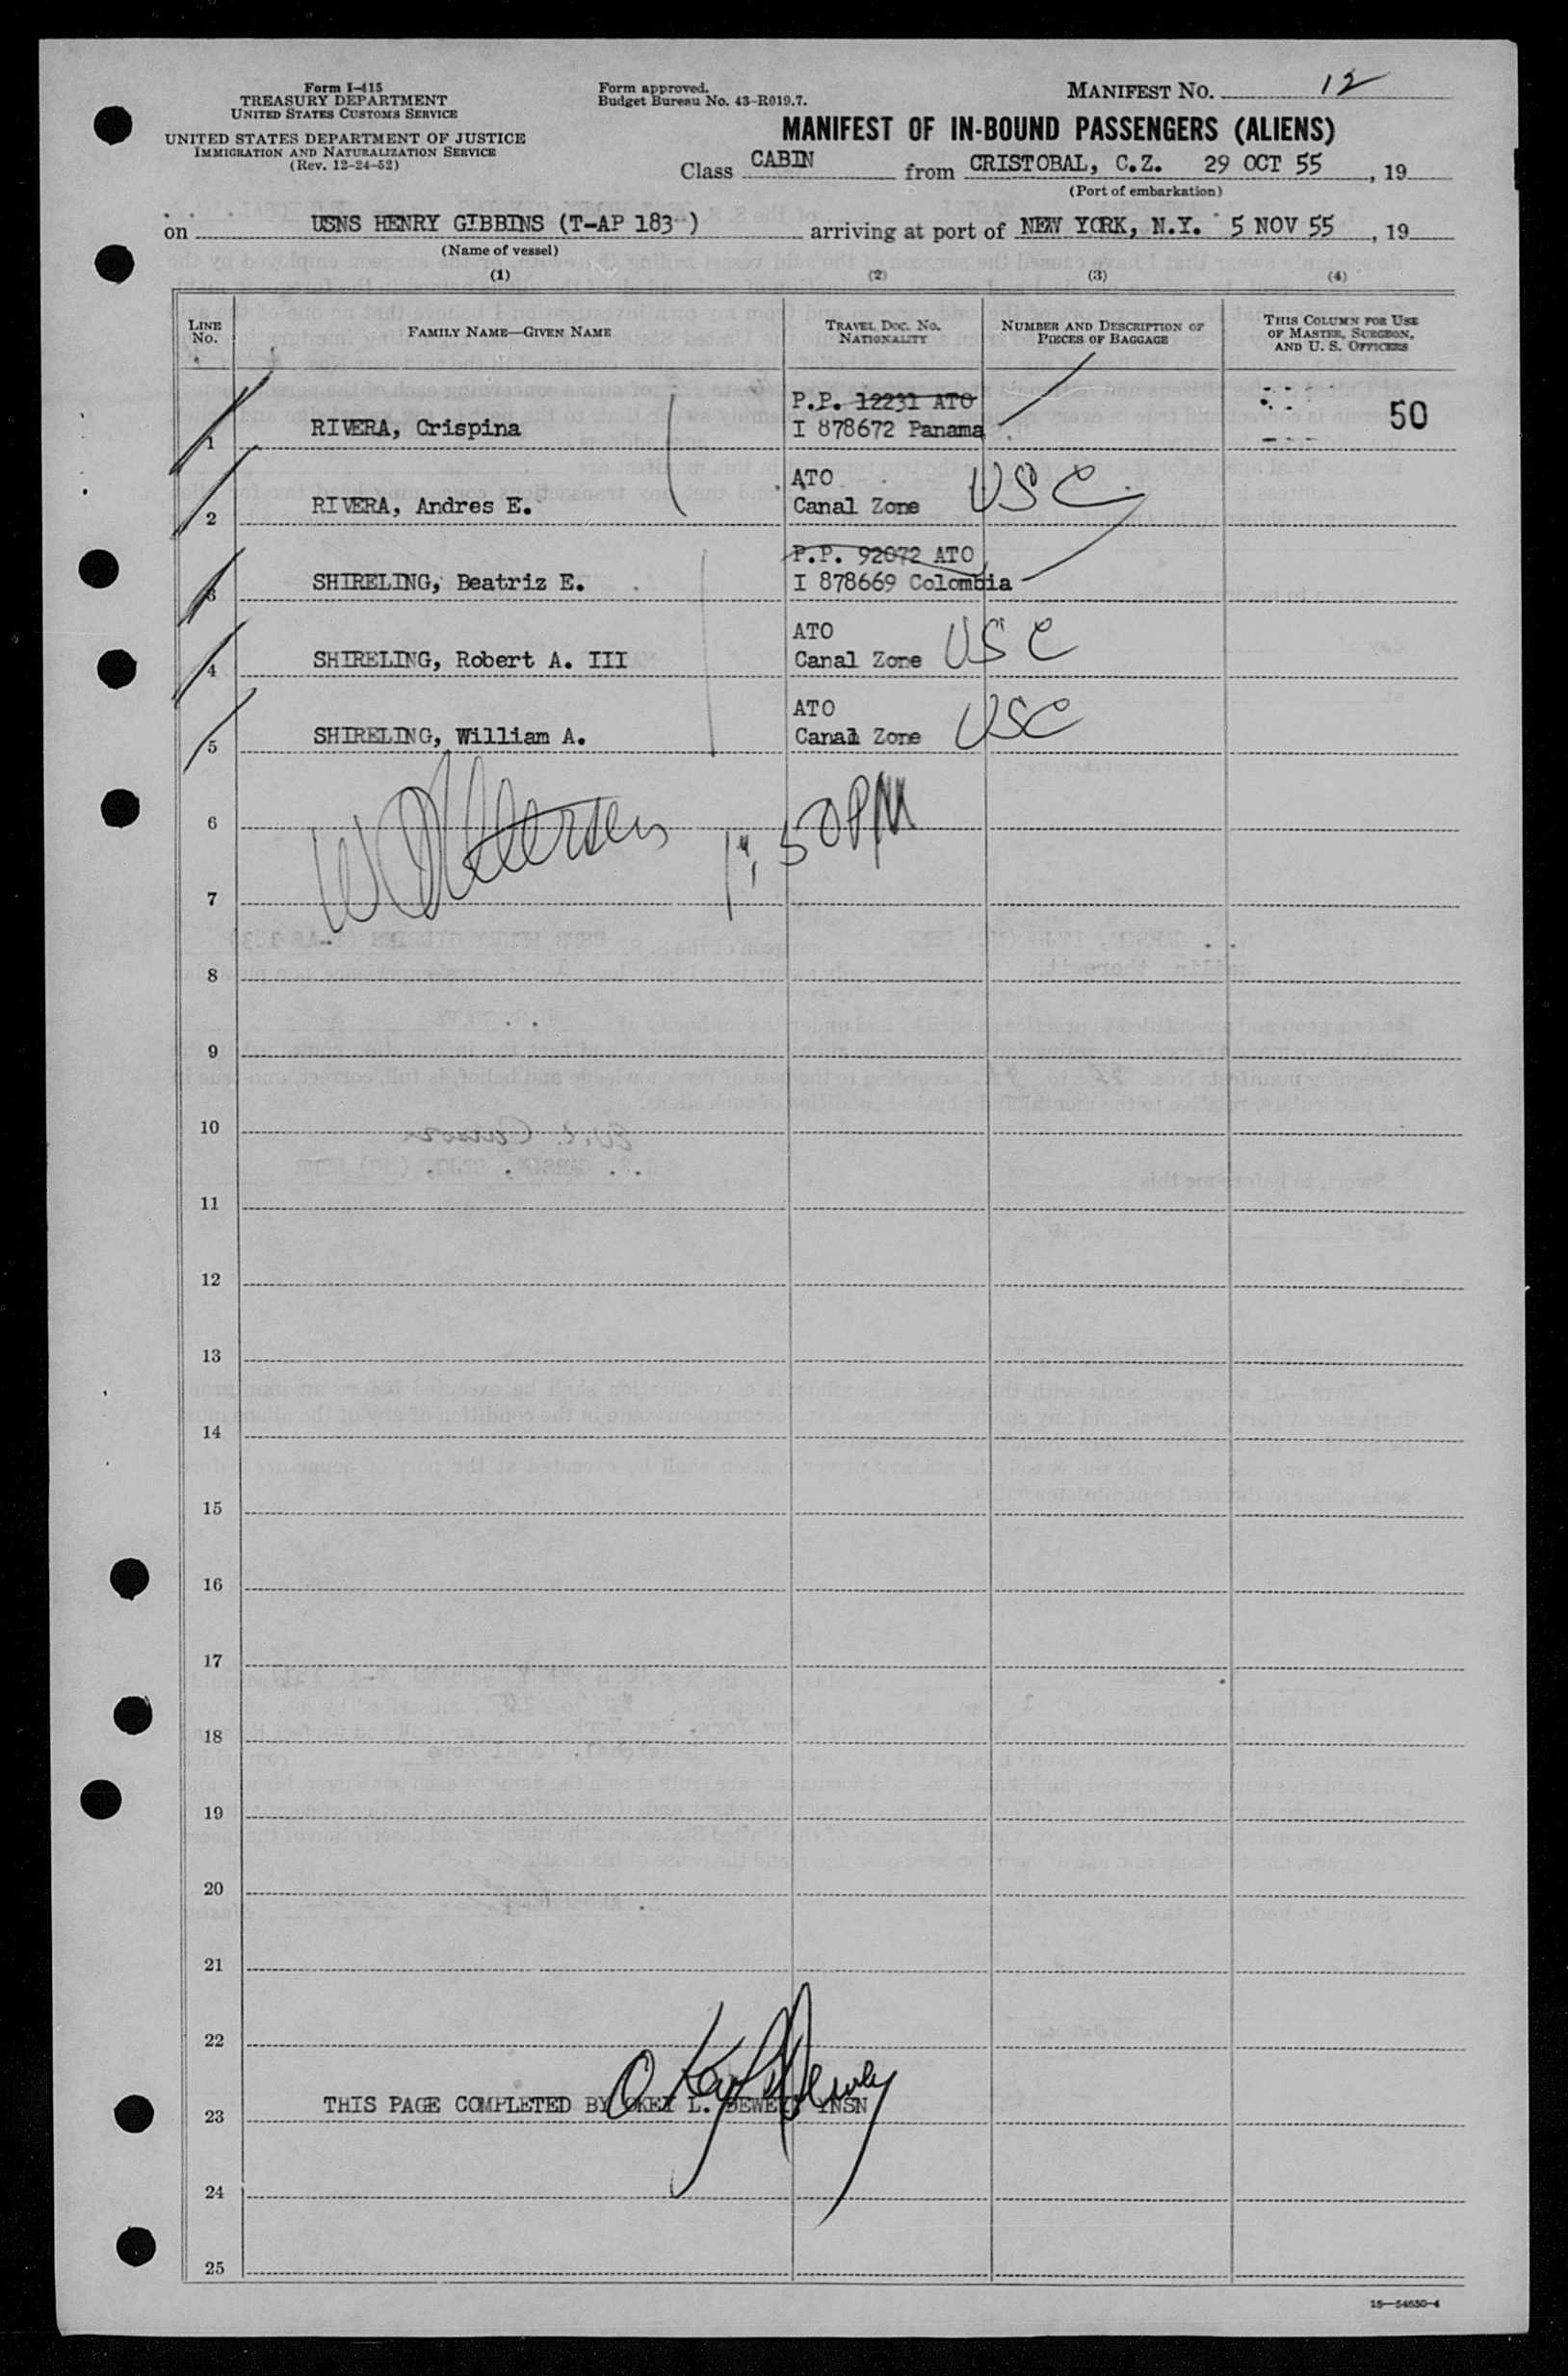 Form I-415
TREASURY DEPARTMENT
UNITED STATES CUSTOMS SERVICE
UNITED STATES DEPARTMENT OF JUSTICE
IMMIGRATION AND NATURALIZATION SERVICE
(Rev. 12-24-52)
Form approved.
Budget Bureau No. 43-R019.7.
MANIFEST NO. 12
MANIFEST OF IN-BOUND PASSENGERS (ALIENS)
Class CABIN from CRISTOBAL, C.Z. 29 OCT 55, 19
(Port of embarkation)
on USNS HENRY GIBBINS (T-AP 183) arriving at port of NEW YORK, N.Y. 5 NOV 55, 19
(Name of vessel)
(1) (2) (3) (4)
LINE NO.
FAMILY NAME—GIVEN NAME
TRAVEL DOC. NO. NATIONALITY
NUMBER AND DESCRIPTION OF PIECES OF BAGGAGE
THIS COLUMN FOR USE OF MASTER, SURGEON, AND U. S. OFFICERS
P.P. 12231 ATO
1 RIVERA, Crispina I 878672 Panama 50
ATO
2 RIVERA, Andres E. Canal Zone USC
P.P. 92072 ATO
3 SHIRELING, Beatriz E. I 878669 Colombia
ATO
4 SHIRELING, Robert A. III Canal Zone USC
ATO
5 SHIRELING, William A. Canal Zone USC
6 1:50PM
7
8
9
10
11
12
13
14
15
16
17
18
19
20
21
22
23 THIS PAGE COMPLETED BY OKEY L. DEWEY YNSN
24
25
16—54630-4